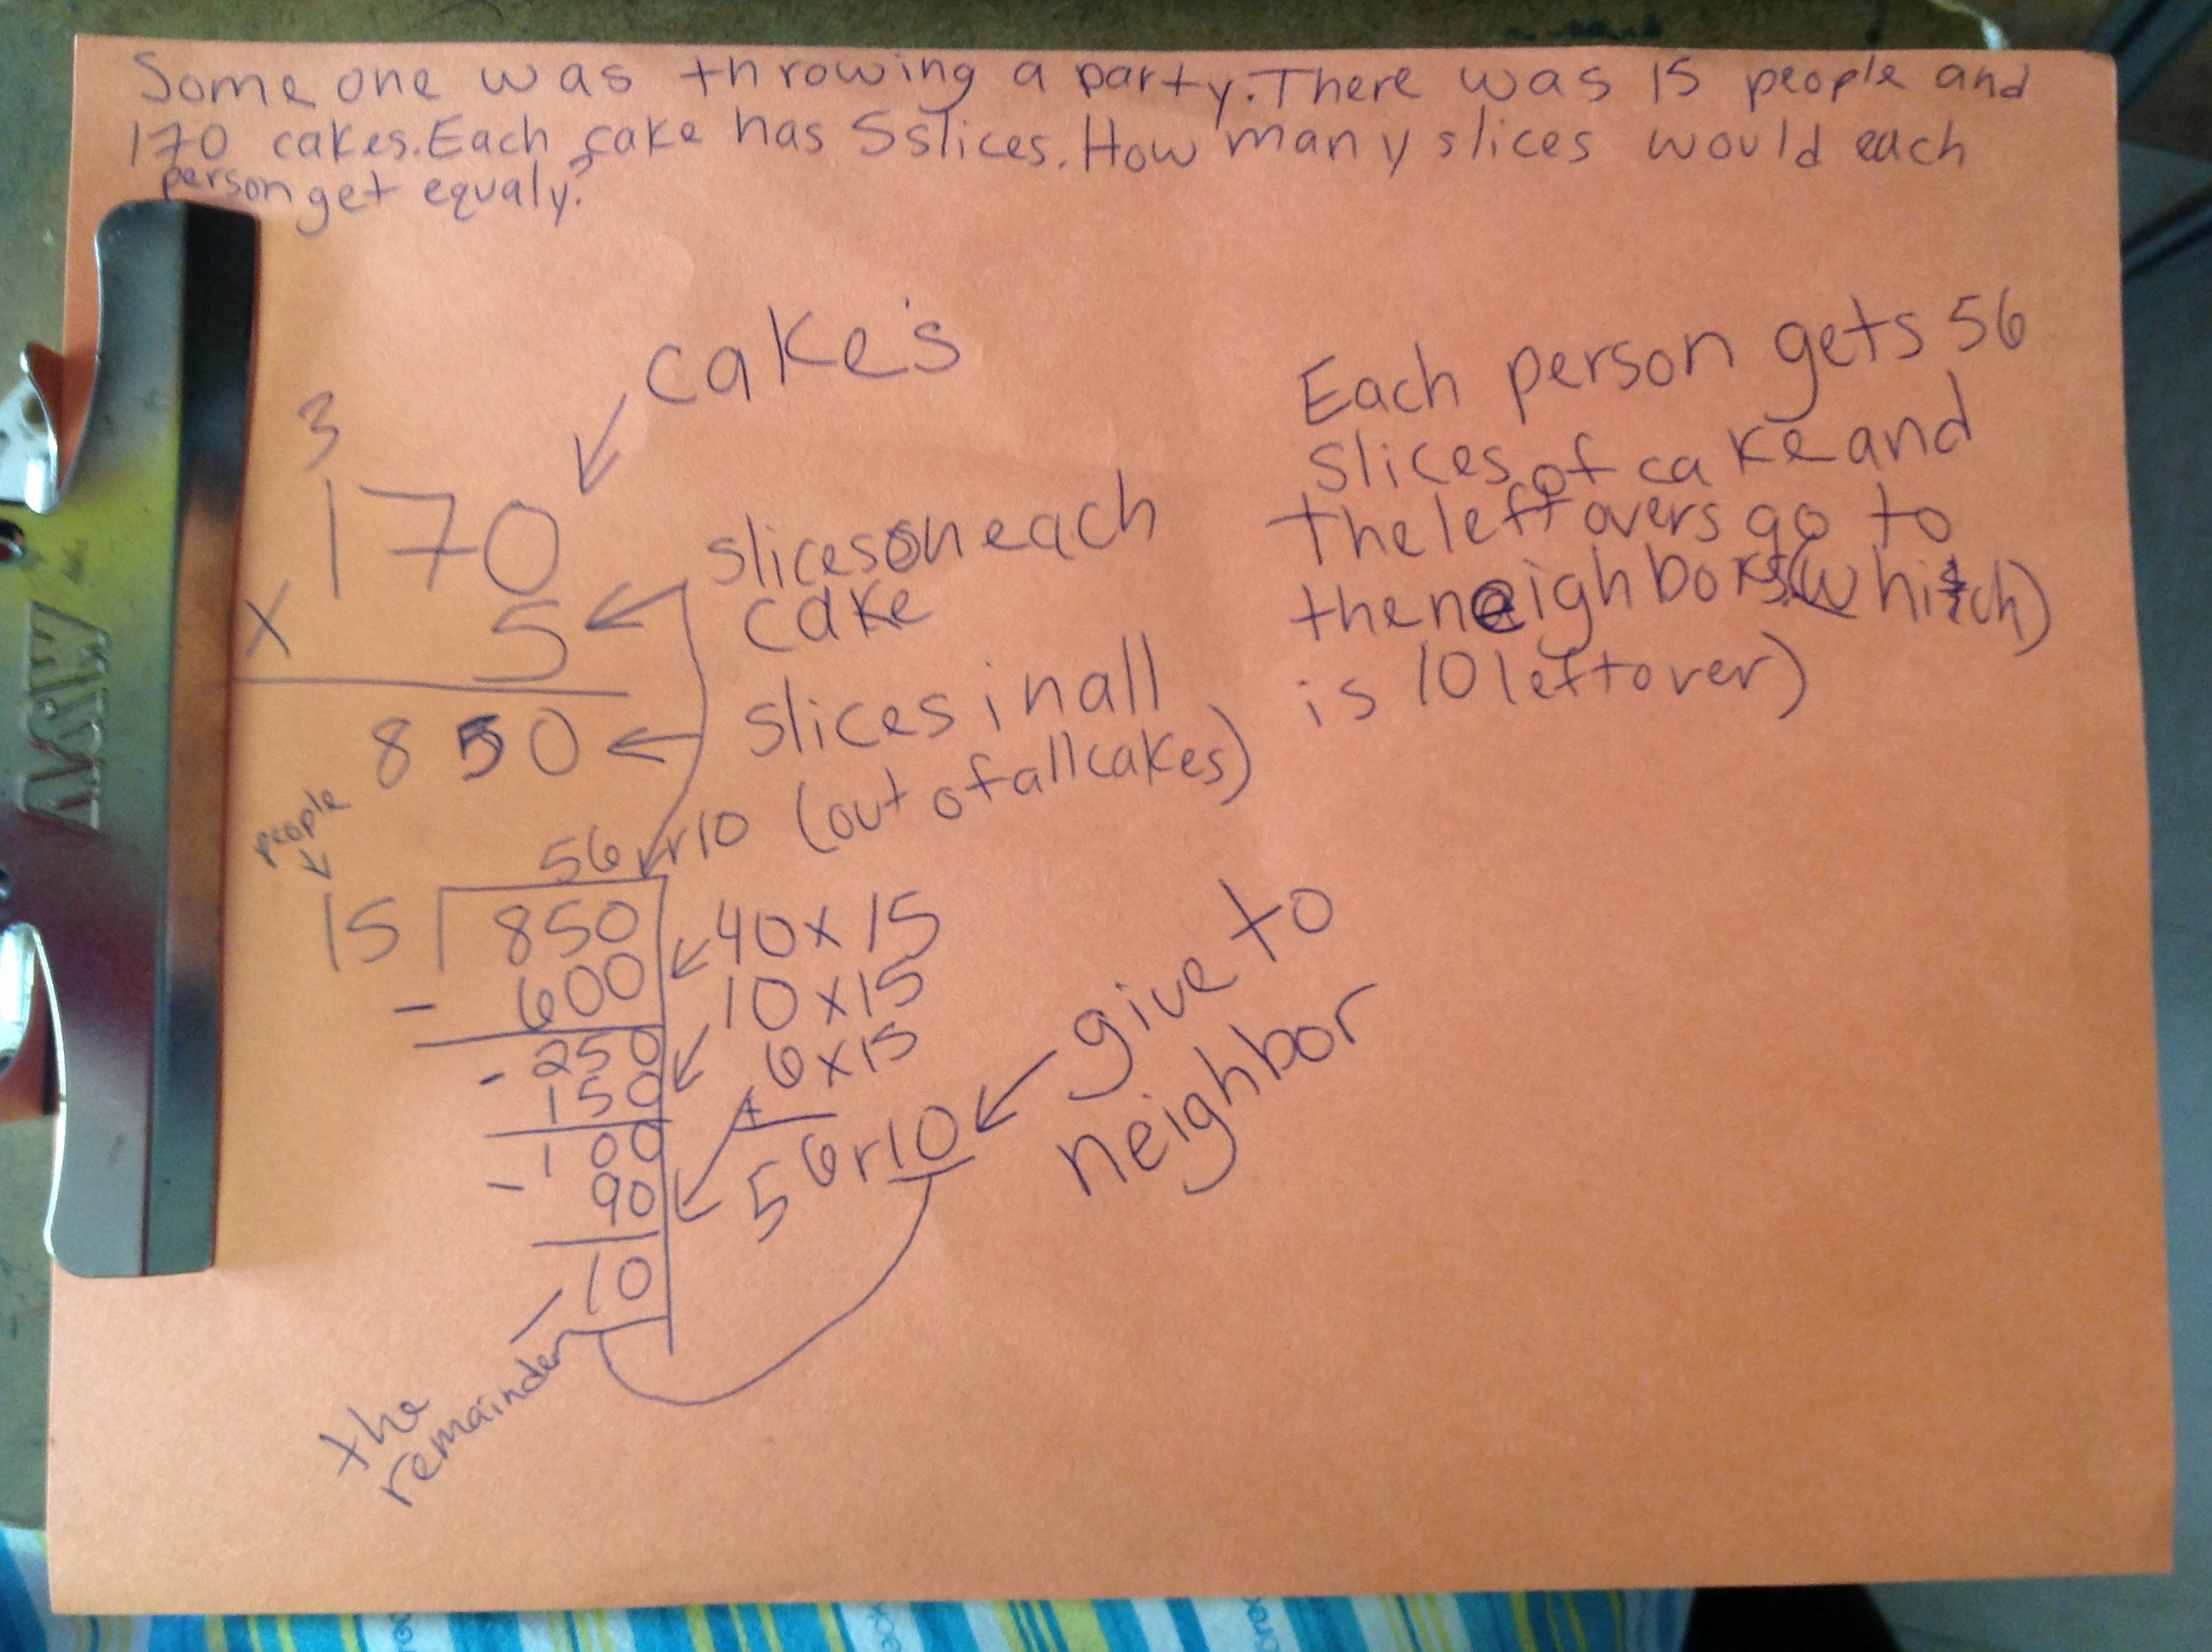 Some one was throwing a party. There was 15 people and
170 cakes. Each cake has 5 slices. How many slices would each
person get equaly?
cake's
3
170
x 5
slices on each
cake
850
slices in all
(out of all cakes)
people
56 r10
15 850
- 600
40 x 15
- 250
150
10 x 15
- 100
90
+ 6 x 15
56 r 10
10
give to
neighbor
the
remainder
Each person gets 56
slices of cake and
the left overs go to
the neighbors (which)
is 10 left over)